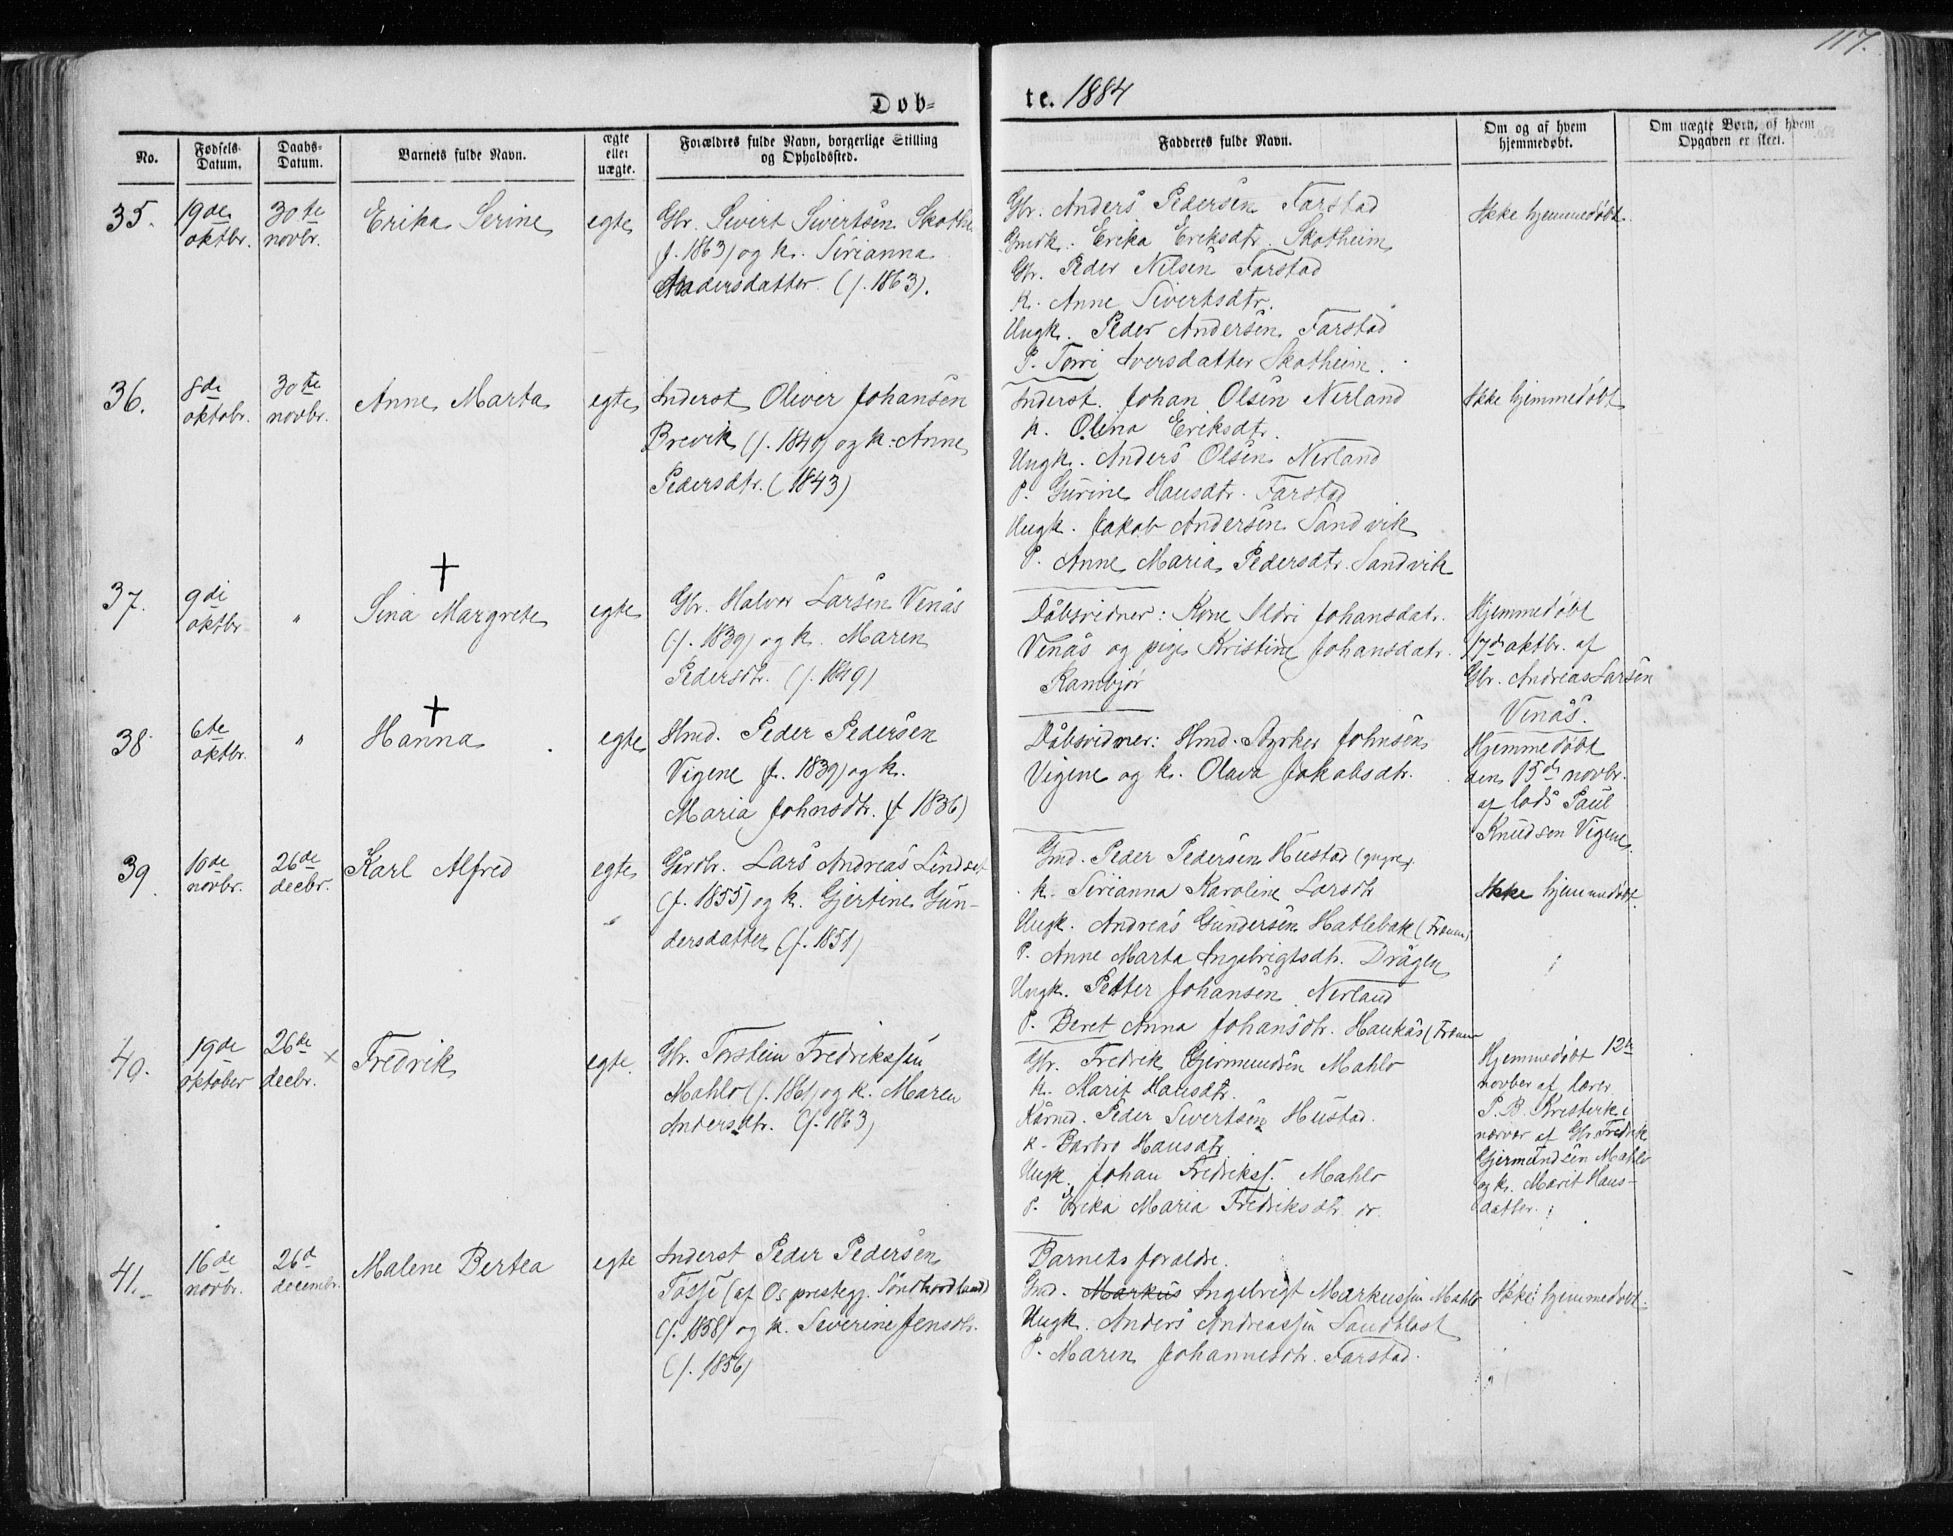 117.
Døb-
te. 1884
No.
Fødsels-
Datum.
Daabs-
Datum.
Barnets fulde Navn.
ægte
eller
uægte.
Forældres fulde Navn, borgerlige Stilling
og Opholdssted.
Fadderes fulde Navn.
Om og af hvem
hjemmedøbt.
Om uægte Børn, af hvem
Opgaven er skeet.
35.
19de
oktbr.
30te
novbr.
Erika Serine
egte
Gbr. Sivert Sivertsen Skothe
(f. 1863) og k. Sirianna
Andersdatter (f. 1863).
Gbr. Anders Pedersen Farstad
Gmdk. Erika Eriksdtr. Skotheim
Gbr. Peder Nilsen Farstad
K. Anne Sivertsdtr.
Ungk. Peder Andersen Farstad
P. Torri Iversdatter Skotheim.
Ikke hjemmedøbt.
36.
8de
oktobr.
30te
novbr.
Anne Marta
egte
Inderst Oliver Johansen
Brevik (f. 1840) og k. Anne
Pedersdtr. (1843)
Inderst. Johan Olsen Nerland
k. Olina Eriksdtr.
Ungk. Anders Olsen Nerland
P. Gurine Hansdtr. Farstad
Ungk. Jakob Andersen Sandvik
P. Anne Maria Pedersdtr. Sandvik
Ikke hjemmedøbt
37.
9de
oktbr
"
+
Sina Margrete
egte
Gbr. Halvor Larsen Venås
(f. 1839) og k. Maren
Pedersdtr. (f. 1849)
Dåbsvidner: Kone Ildri Johansdatr.
Venås og pige Kristine Johansdatr.
Rambjør
Hjemmedøbt
17de oktbr. af
Gbr. Andreas Larsen
Venås.
38
6te
oktbr.
"
+
Hanna
egte
Hmd. Peder Pedersen
Vigene (f. 1839) og k.
Maria Johnsdtr. (f. 1836)
Dåbsvidner: Hmd. Styrker Johnsen
Vigene og k. Olava Jakobsdtr.
Hjemmedøbt
den 15de novbr.
af lods Paul
Knudsen Vigene.
39
10de
novbr.
26de
decbr.
Karl Alfred
egte
Gårdbr. Lars Andreas Lindset
(f. 1855) og k. Gjertine Gun-
dersdatter (f. 1851)
Gmd. Peder Pedersen Hustad
k. Sirianna Karoline Larsdtr
Ungk. Andreas Gundersen Hatlebak (Frænen)
P. Anne Marta Ingebrigtsdtr. Drågen
Ungk. Petter Johansen Nerland
P. Beret Anna Johansdtr. Haukås (Frænen
Ikke hjemmedøbt.
40.
19de
oktober
26de
decbr.
×
Fredrik
egte.
Gbr. Torstein Fredrikssen
Mahlo (f. 1861) og k. Maren
Andersdtr. (f. 1863)
Gbr. Fredrik Gjermundsen Mahlo
k. Marit Hansdtr.
Kårmd. Peder Sivertsen Hustad.
k. Barbro Hansdtr
Ungk. Johan Fredrikss. Mahlo
P. Erika Maria Fredriksdtr. do.
Hjemmedøbt 12te
novber af lærer
P. B. Kristerk i
nærvær af Gbr. Fredrik
Gjermundsen Mahlo
og k. Marit Hans-
datter.
41.
16de
novbr.
26de
decembr.
Malene Bertea
egte
Inderst Peder Pedersen
Tøsse (af Os prestegj. Søndhordland)
(f. 1858) og k. Severine Jensdtr.
(f. 1856)
Barnets foraldre.
Gmd. Markus Ingebrigt Markussen Mahlo
Ungk. Anders Andreassen Sandblåst
P. Maren Johannesdtr. Farstad.
Ikke hjemmedøbt.